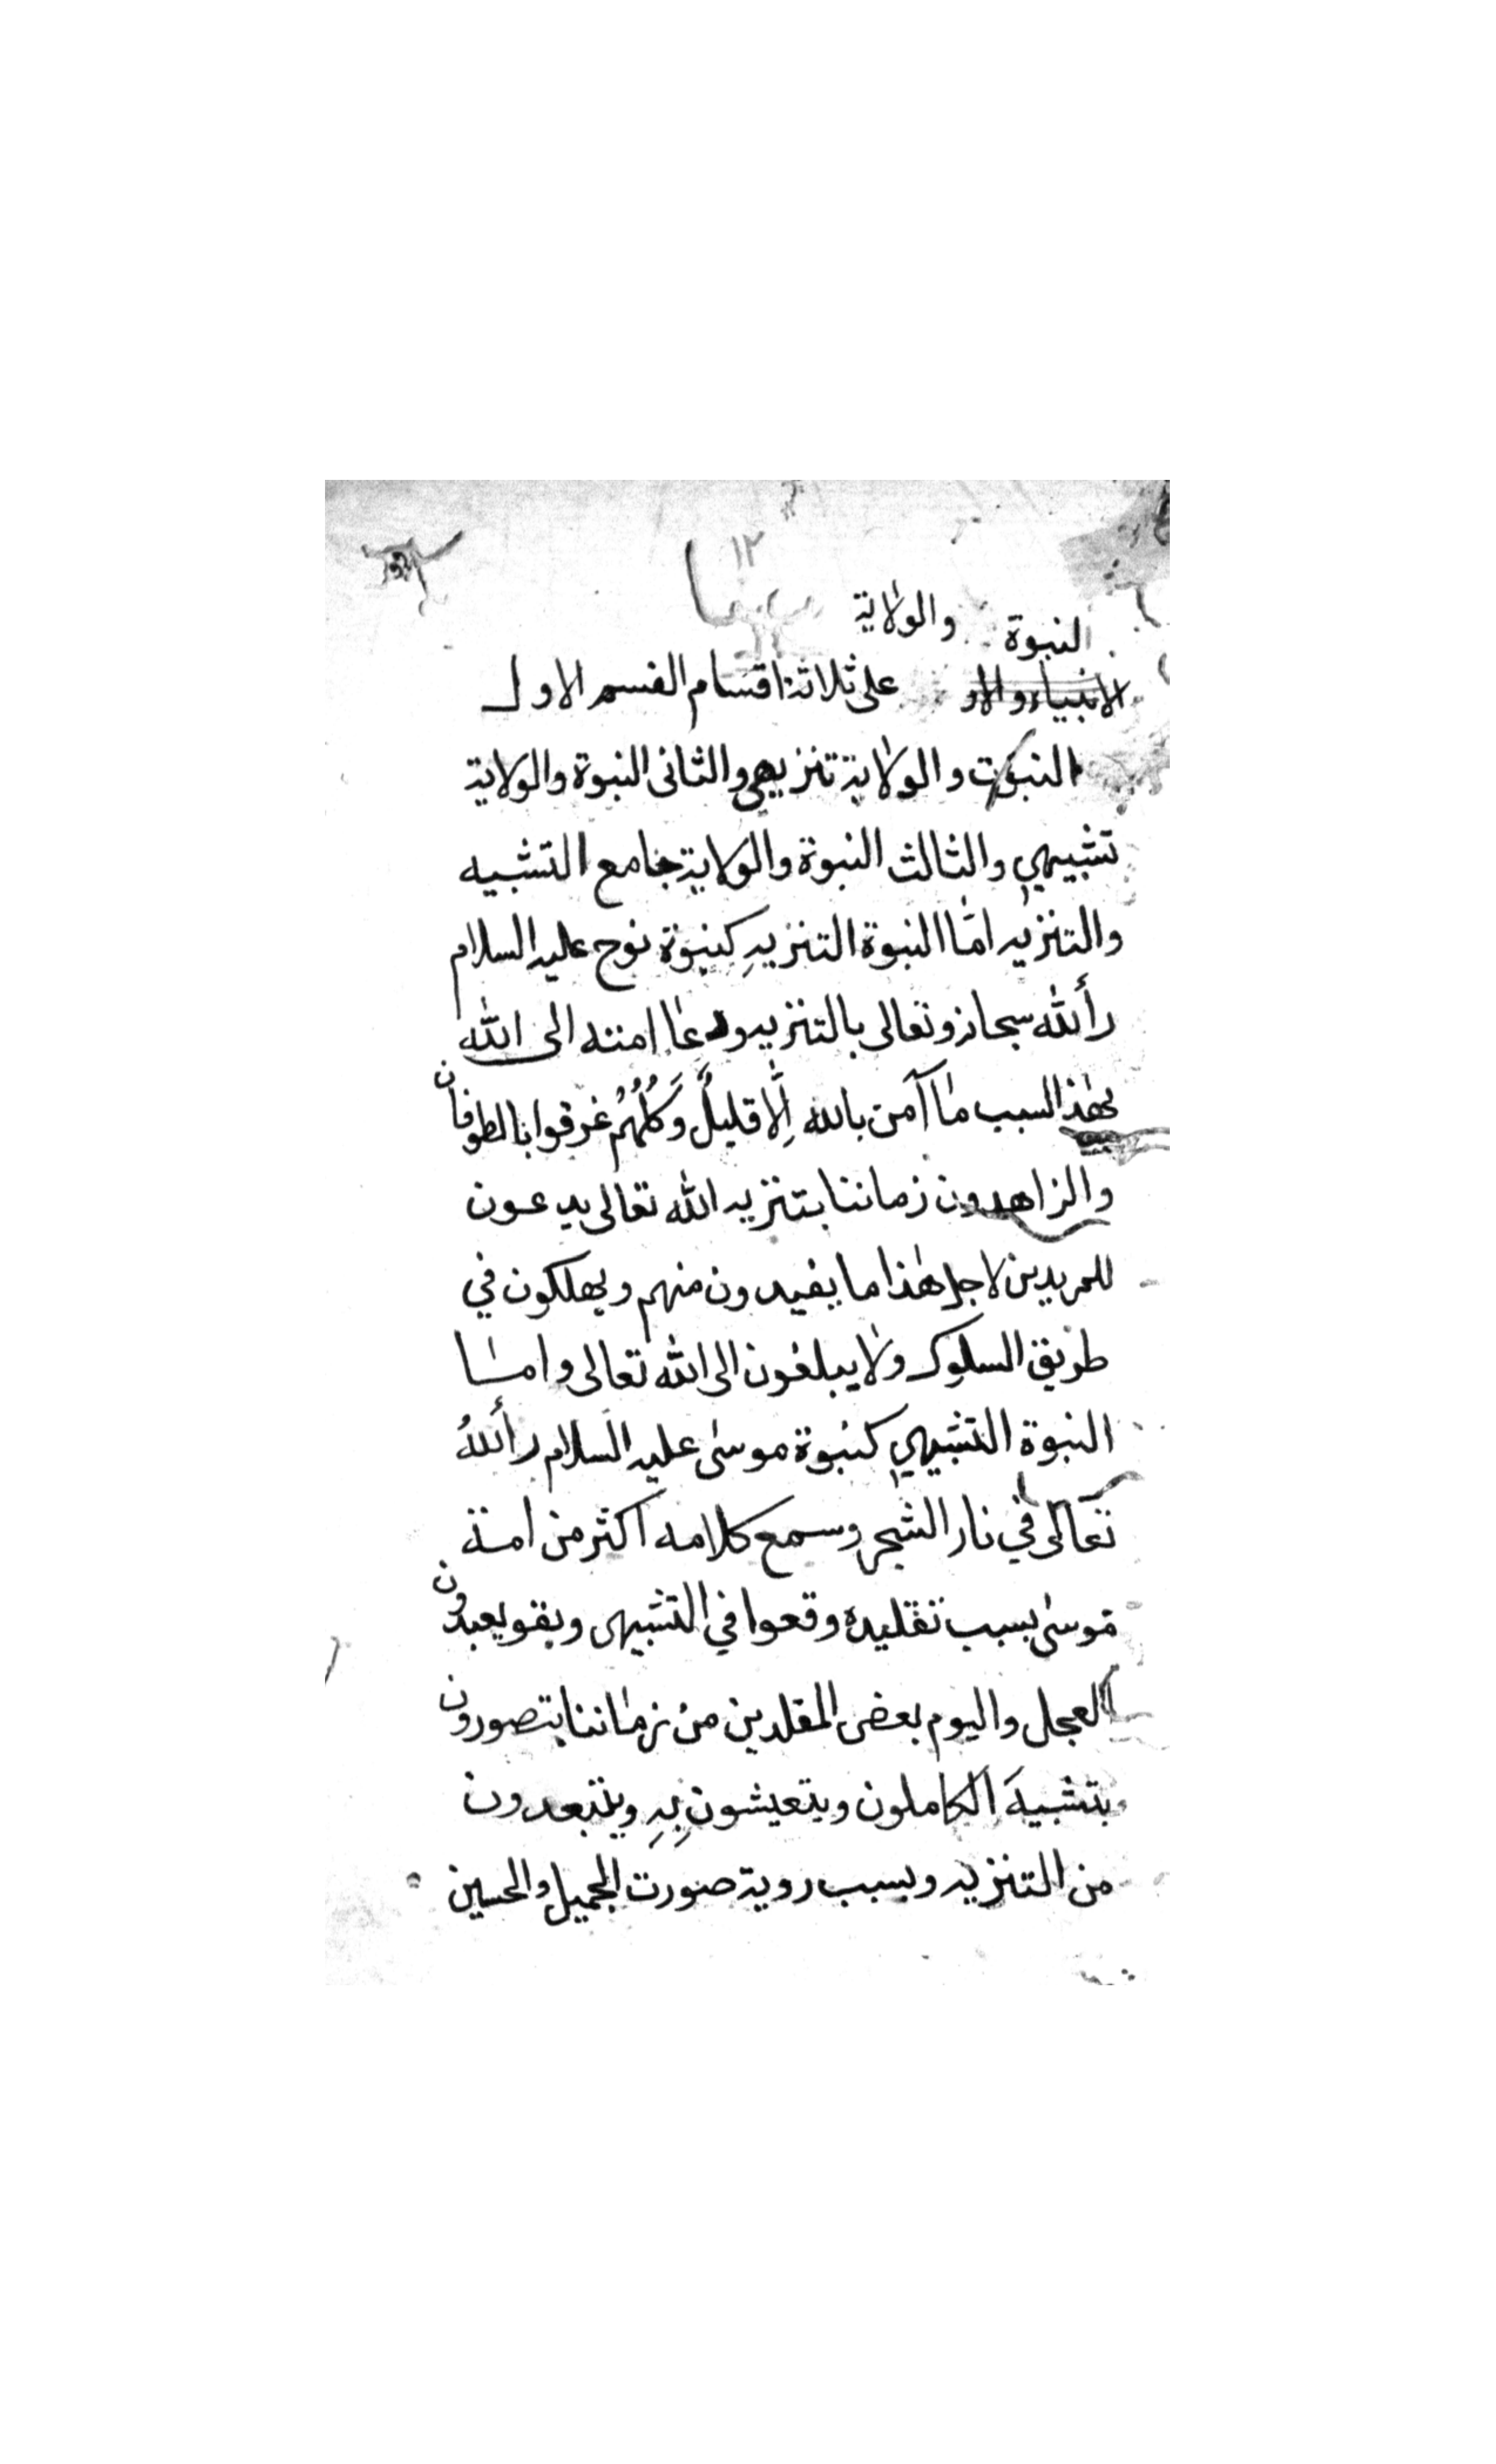 ١٢
النبوة والولاية
الانبياء والاو على ثلاثة اقسام القسم الاول
النبوت والولاية تنزيهي والثاني النبوة والولاية
تشبيهي والثالث النبوة والولاية جامع التشبيه
والتنزيه امّا النبوة التنزيهِ كنبوة نوح عليه السلام
رأ لله سبحانه وتعالى بالتنزيه ودعا امته الى الله
بهذ السبب ما آمن بالله اِلّا قليلٌ وَكُلُّهُمْ غرقوا بالطوفان
والزاهدون زماننا بتنزيه الله تعالى يدعون
للمريدين لاجل هذا ما يفيدون منهم ويهلكون في
طريق السلوك ولا يبلغون الى الله تعالى واما
النبوة التشبيهي كنبوة موسى عليه السلام رأ للهُ
تعالى في نار الشجر وسمع كلامه اكثر من امة
موسى بسبب تقليده وقعوا في التشبيهي وبقو يعبدون
العجل واليوم بعض المقلدين من زماننا بتصورون
بتشبيه الكاملون ويتعيشون بِهِ ويتبعدون
من التنزيه وبسبب روية صورت الجميل والحسين